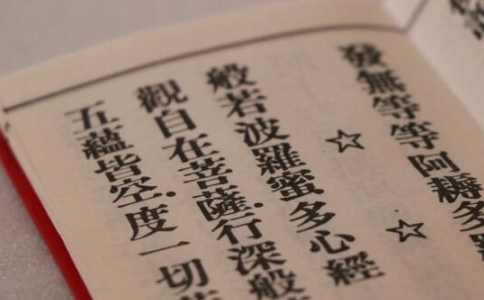 發無等等阿耨多
☆ ☆
般若波羅蜜多心經
觀自在菩薩.行深般
五蘊皆空.度一切